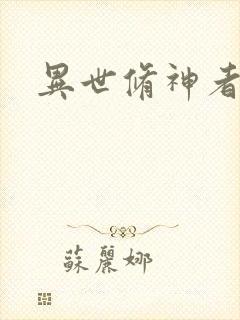 異世脩神者
蘇麗娜